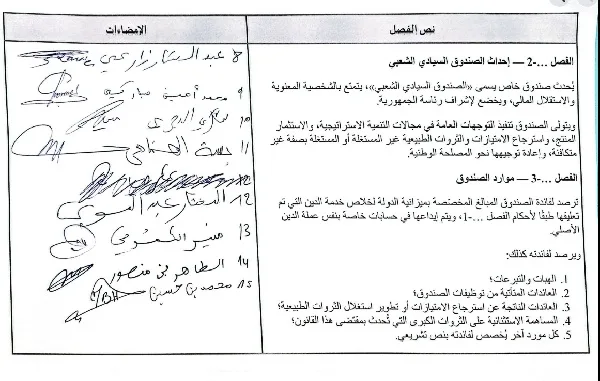 نص الفصل
الفصل ...-2 — إحداث الصندوق السيادي الشعبي
يُحدث صندوق خاص يسمى «الصندوق السيادي الشعبي»، يتمتع بالشخصية المعنوية
والاستقلال المالي، ويخضع لإشراف رئاسة الجمهورية.
ويتولى الصندوق تنفيذ التوجهات العامة في مجالات التنمية الاستراتيجية، والاستثمار
المنتج، واسترجاع الامتيازات والثروات الطبيعية غير المستغلة أو المستغلة بصفة غير
متكافئة، وإعادة توجيهها نحو المصلحة الوطنية.
الفصل ...-3 — موارد الصندوق
ترصد لفائدة الصندوق المبالغ المخصّصة بميزانية الدولة لخلاص خدمة الدين التي تم
تعليقها طبقًا لأحكام الفصل ...-1، ويتم إيداعها في حسابات خاصة بنفس عملة الدين
الأصلي.
ويرصد لفائدته كذلك:
1. الهبات والتبرعات؛
2. العائدات المتأتية من توظيفات الصندوق؛
3. العائدات الناتجة عن استرجاع الامتيازات أو تطوير استغلال الثروات الطبيعية؛
4. المساهمة الاستثنائية على الثروات الكبرى التي تُحدث بمقتضى هذا القانون؛
5. كل مورد آخر يُخصص لفائدته بنص تشريعي.
الإمضاءات
8 عبد الستار زارعي
9 محمد أمين مباركي
10
11
12 المختار عبد
13
14 الطاهر بن منصور
15 محمد بن حسين